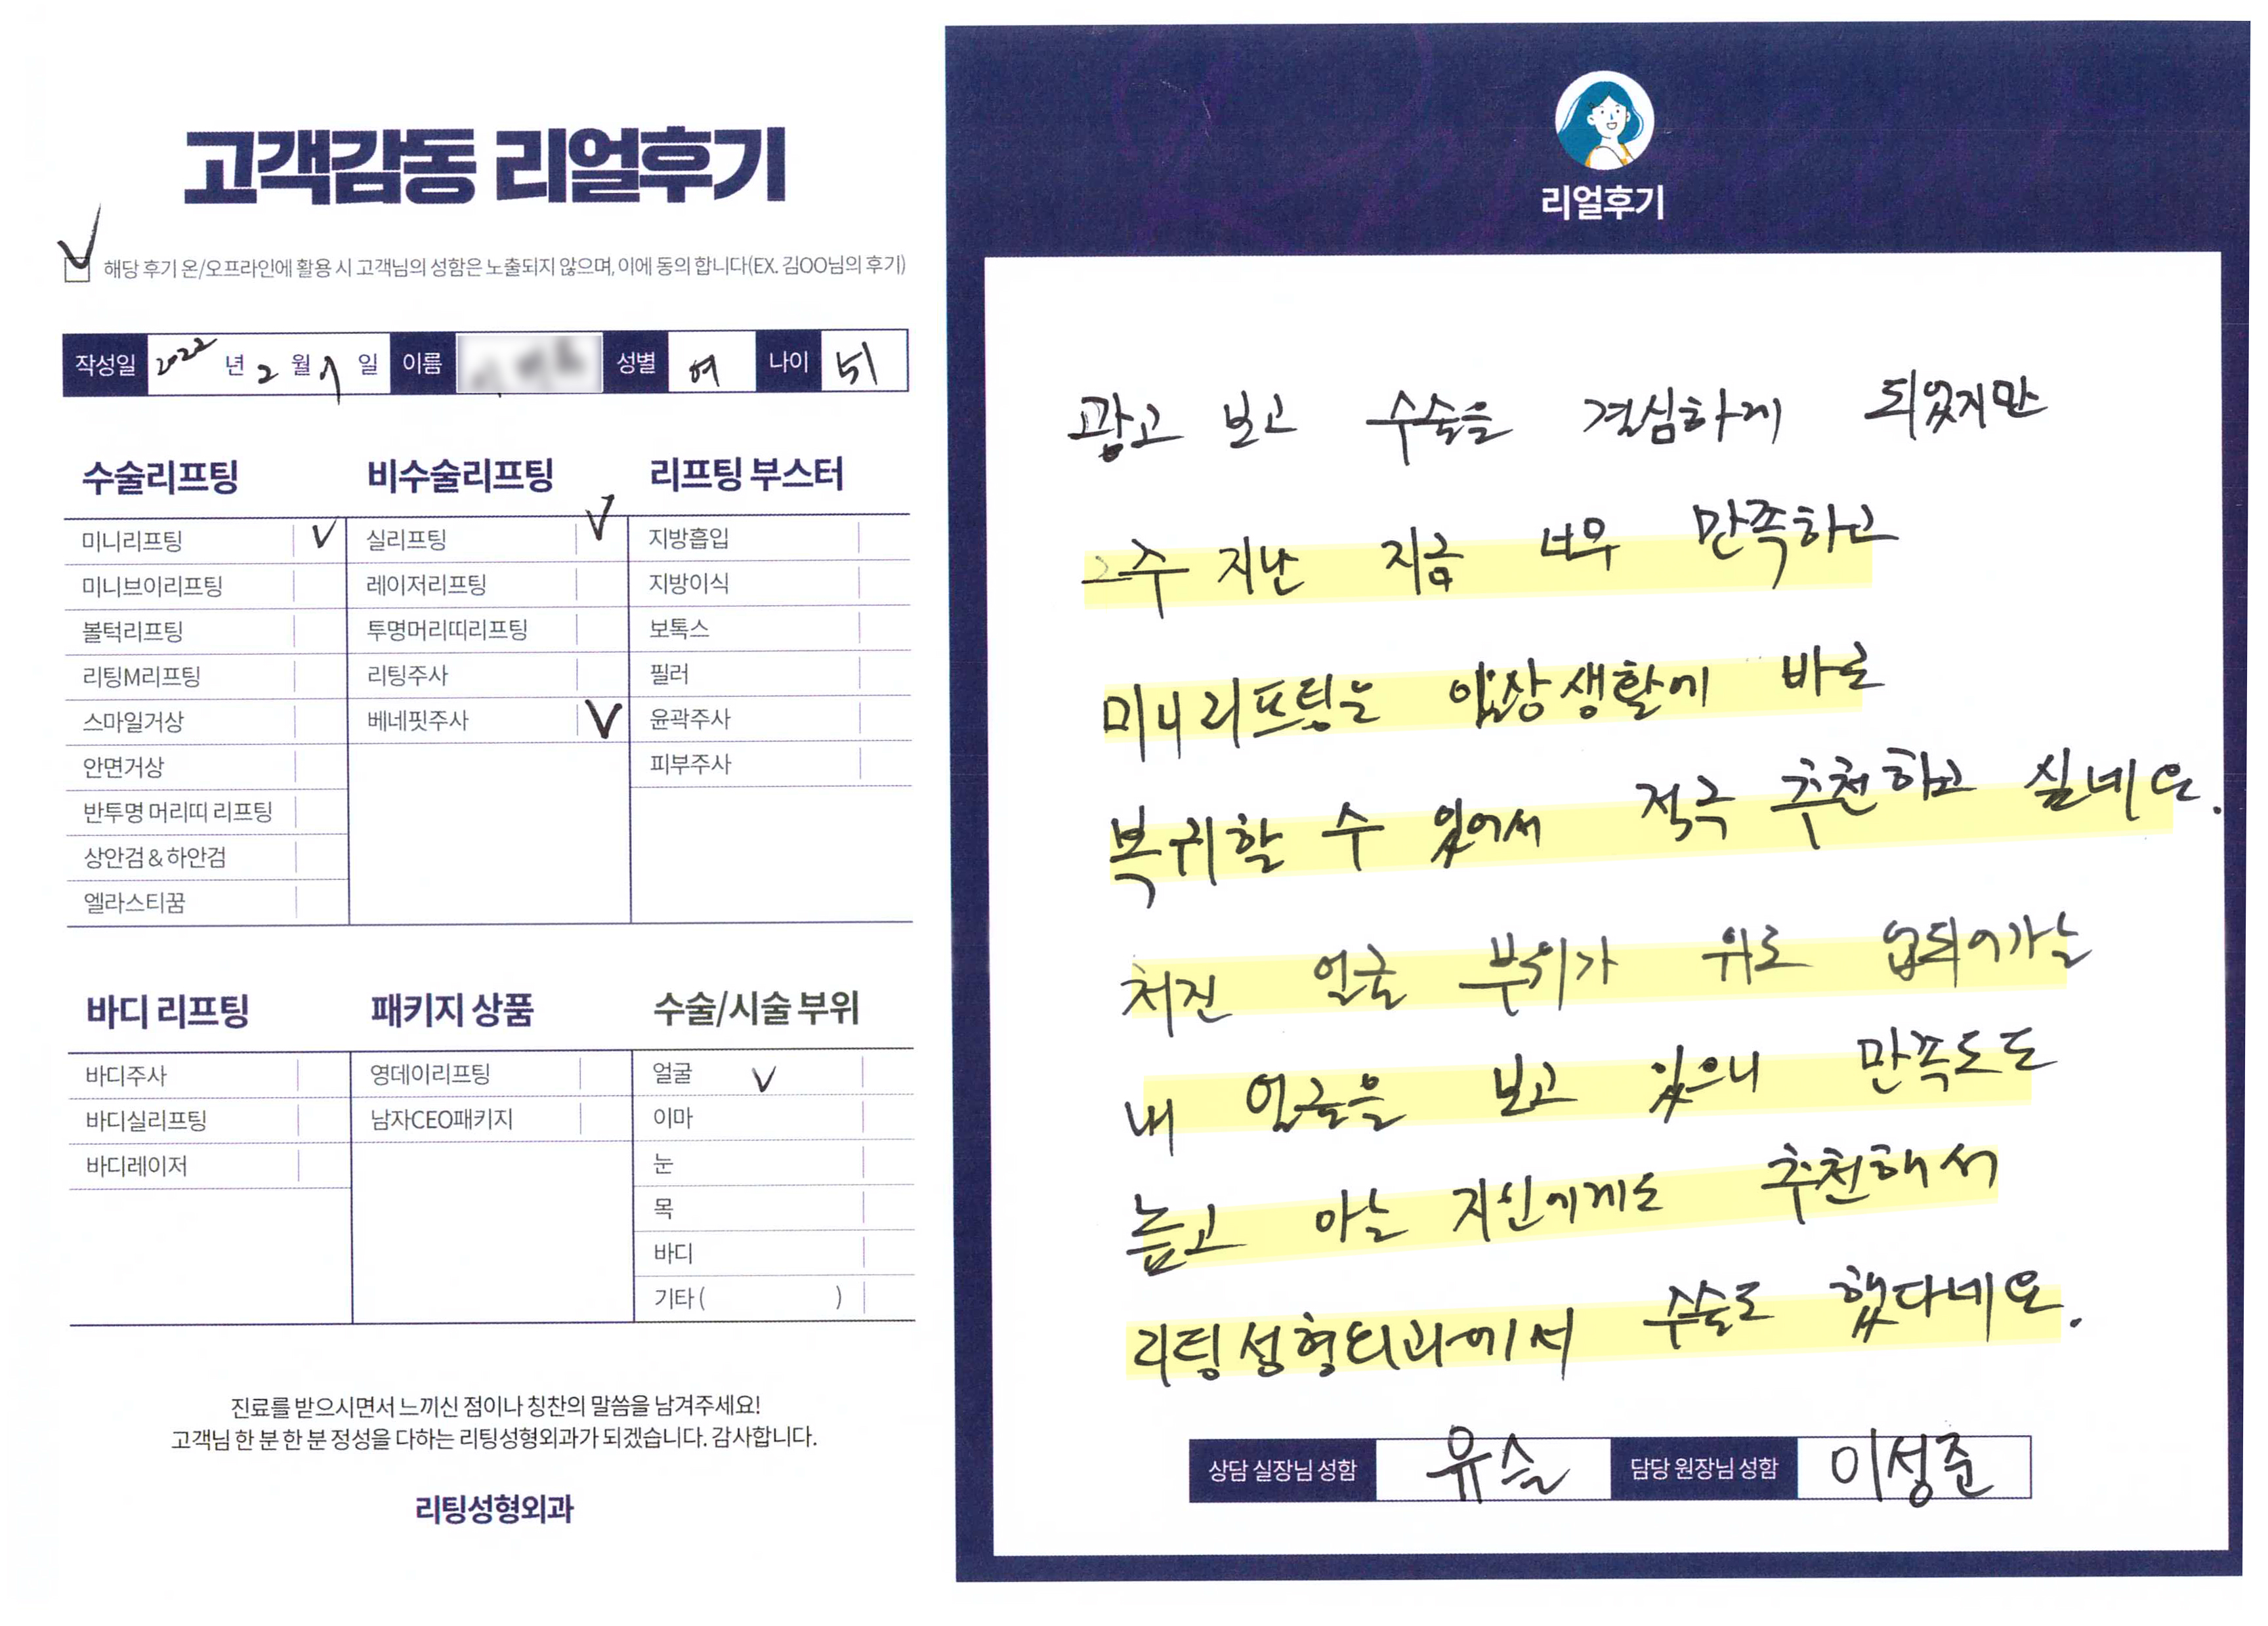 고객감동 리얼후기
해당 후기 온/오프라인에 활용 시 고객님의 성함은 노출되지 않으며, 이에 동의 합니다(EX. 김OO님의 후기)
작성일 2022 년 2 월 일 이름 성별 여 나이 51
수술리프팅 비수술리프팅 리프팅 부스터
미니리프팅 실리프팅 지방흡입
미니브이리프팅 레이저리프팅 지방이식
볼턱리프팅 투명머리띠리프팅 보톡스
리팅M리프팅 리팅주사 필러
스마일거상 베네핏주사 윤곽주사
안면거상 피부주사
반투명 머리띠 리프팅
상안검 & 하안검
엘라스티꿈
바디 리프팅 패키지 상품 수술/시술 부위
바디주사 영데이리프팅 얼굴
바디실리프팅 남자CEO패키지 이마
바디레이저 눈
목
바디
기타 ( )
진료를 받으시면서 느끼신 점이나 칭찬의 말씀을 남겨주세요!
고객님 한 분 한 분 정성을 다하는 리팅성형외과가 되겠습니다. 감사합니다.
리팅성형외과
리얼후기
광고 보고 수술을 결심하게 되었지만
2주 지난 지금 너무 만족하고
미니리프팅은 일상생활에 바로
복귀할 수 있어서 적극 추천하고 싶네요.
처진 얼굴 부위가 위로 업되어가는
내 얼굴을 보고 있으니 만족도도
높고 아는 지인에게도 추천해서
리팅성형외과에서 수술도 했다네요.
상담 실장님 성함 유슬 담당 원장님 성함 이성준